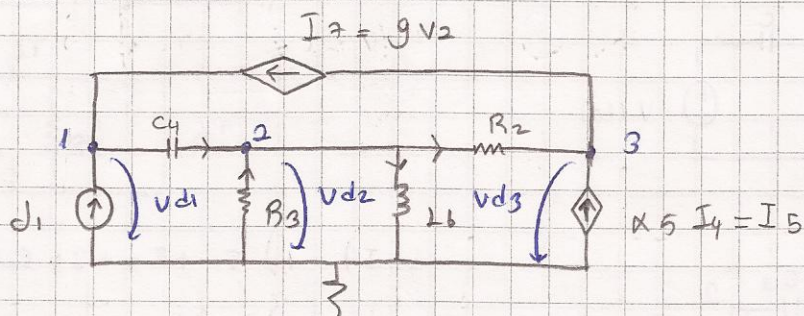 I7 = gv2
1
C4
2
R2
3
d1
vd1
R3
vd2
L6
vd3
α5 I4 = I5